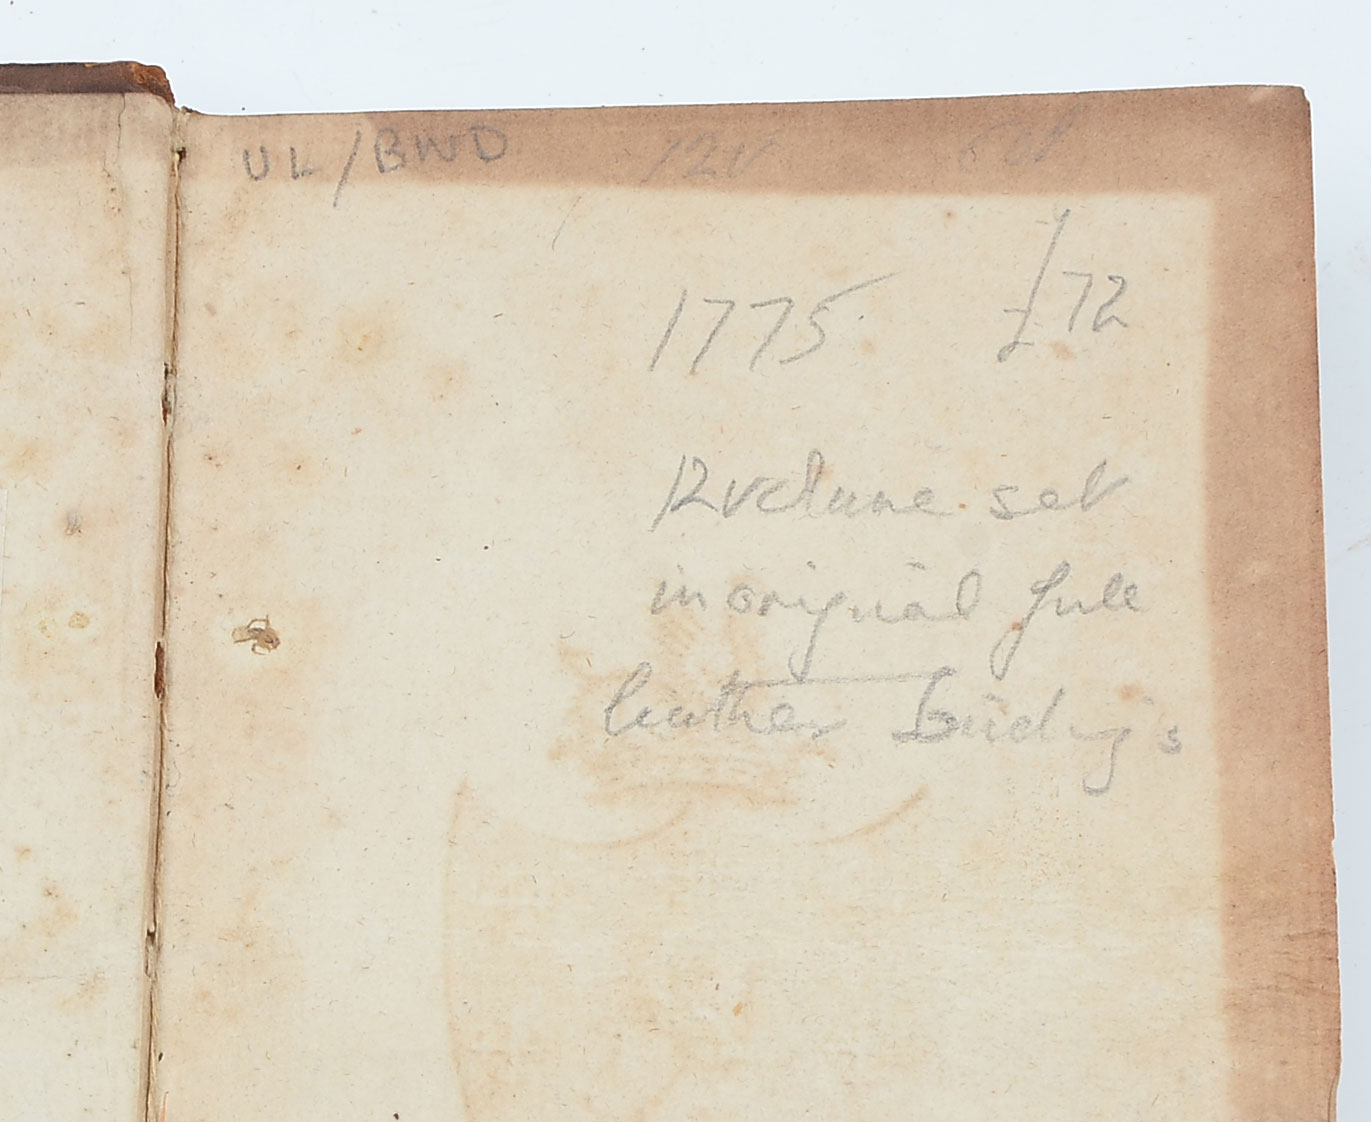 UL/BWD 12v
1775 £72
12 volume set
in original full
leather bindings